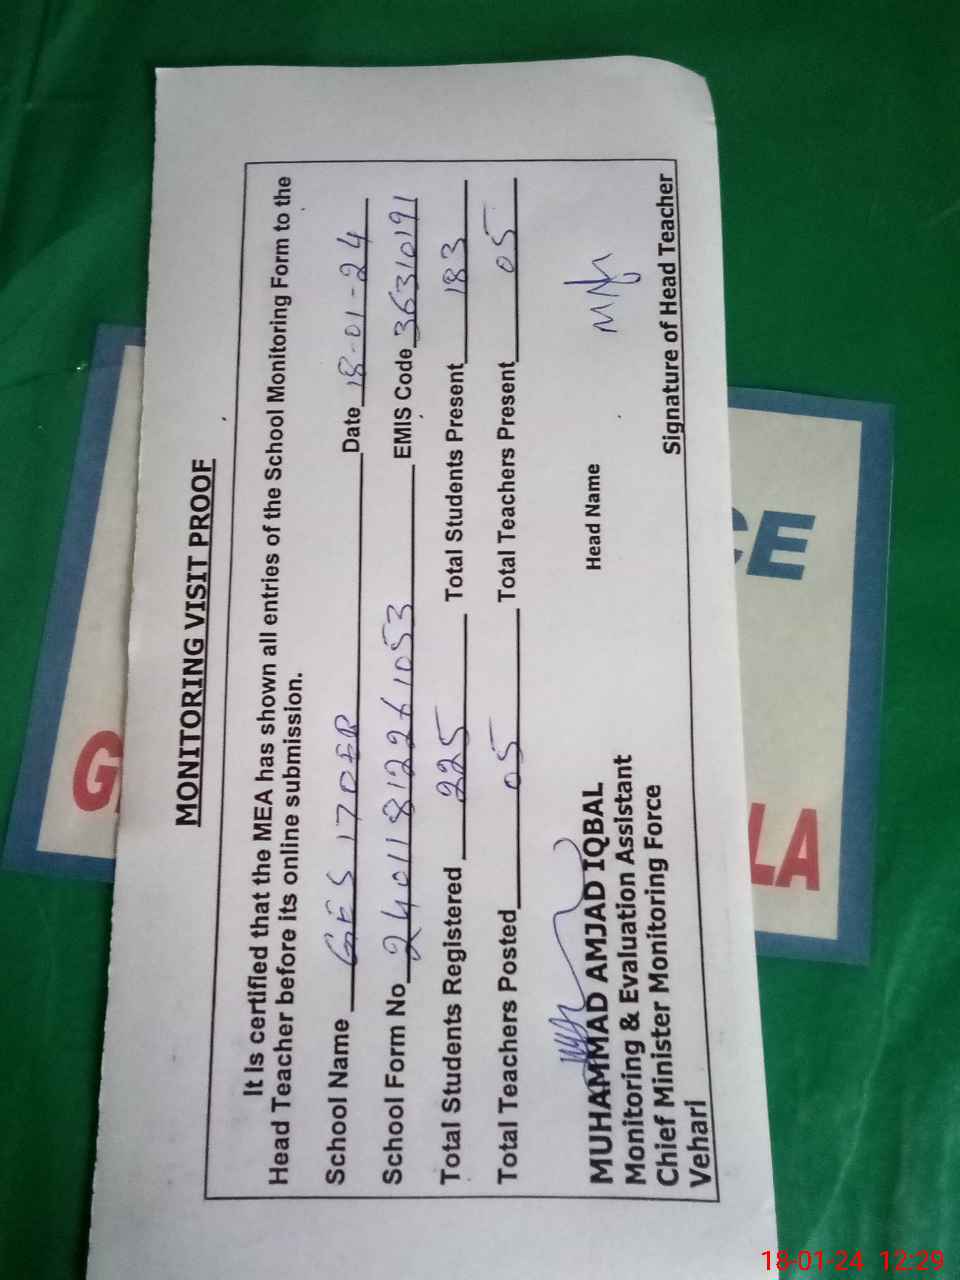 MONITORING VISIT PROOF
It Is certified that the MEA has shown all entries of the School Monitoring Form to the
Head Teacher before its online submission.
School Name GES 170EB Date 18-01-24
School Form No 24011812261053 EMIS Code 36310191
Total Students Registered 225 Total Students Present 183
Total Teachers Posted 05 Total Teachers Present 05
MUHAMMAD AMJAD IQBAL Head Name
Monitoring & Evaluation Assistant
Chief Minister Monitoring Force Signature of Head Teacher
Vehari
G
CE
LA
18-01-24 12:29